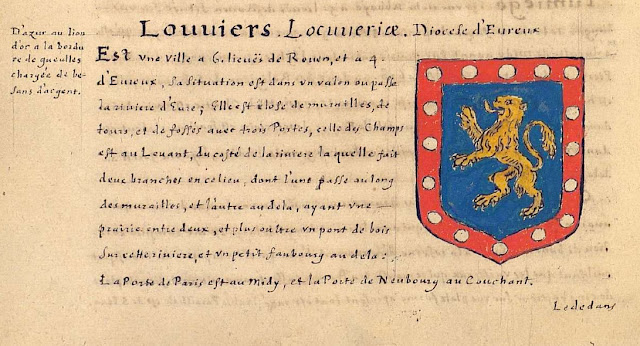 Louviers. Locuveriæ. Diocese d'Eureux
D'azur au lion
d'or a la bordu
re de gueulles
chargée de be-
sans d'argent.
Est vne ville a 6. lieuës de Rouen, et a 4.
d'Eureux, sa situation est dans vn valon ou passe
la riviere d'Eure; Elle est close de murailles, de
tours, et de fossés avec trois Portes, celle des Champs
est au Levant, du costé de la riviere la quelle fait
deux branches en ce lieu, dont l'une passe au long
des murailles, et l'autre au dela, ayant vne
prairie entre deux, et plus oultre vn pont de bois
sur cette riviere, et vn petit faubourg au dela:
La Porte de Paris est au Midy, et la Porte de Neubourg au Couchant.
Le dedans